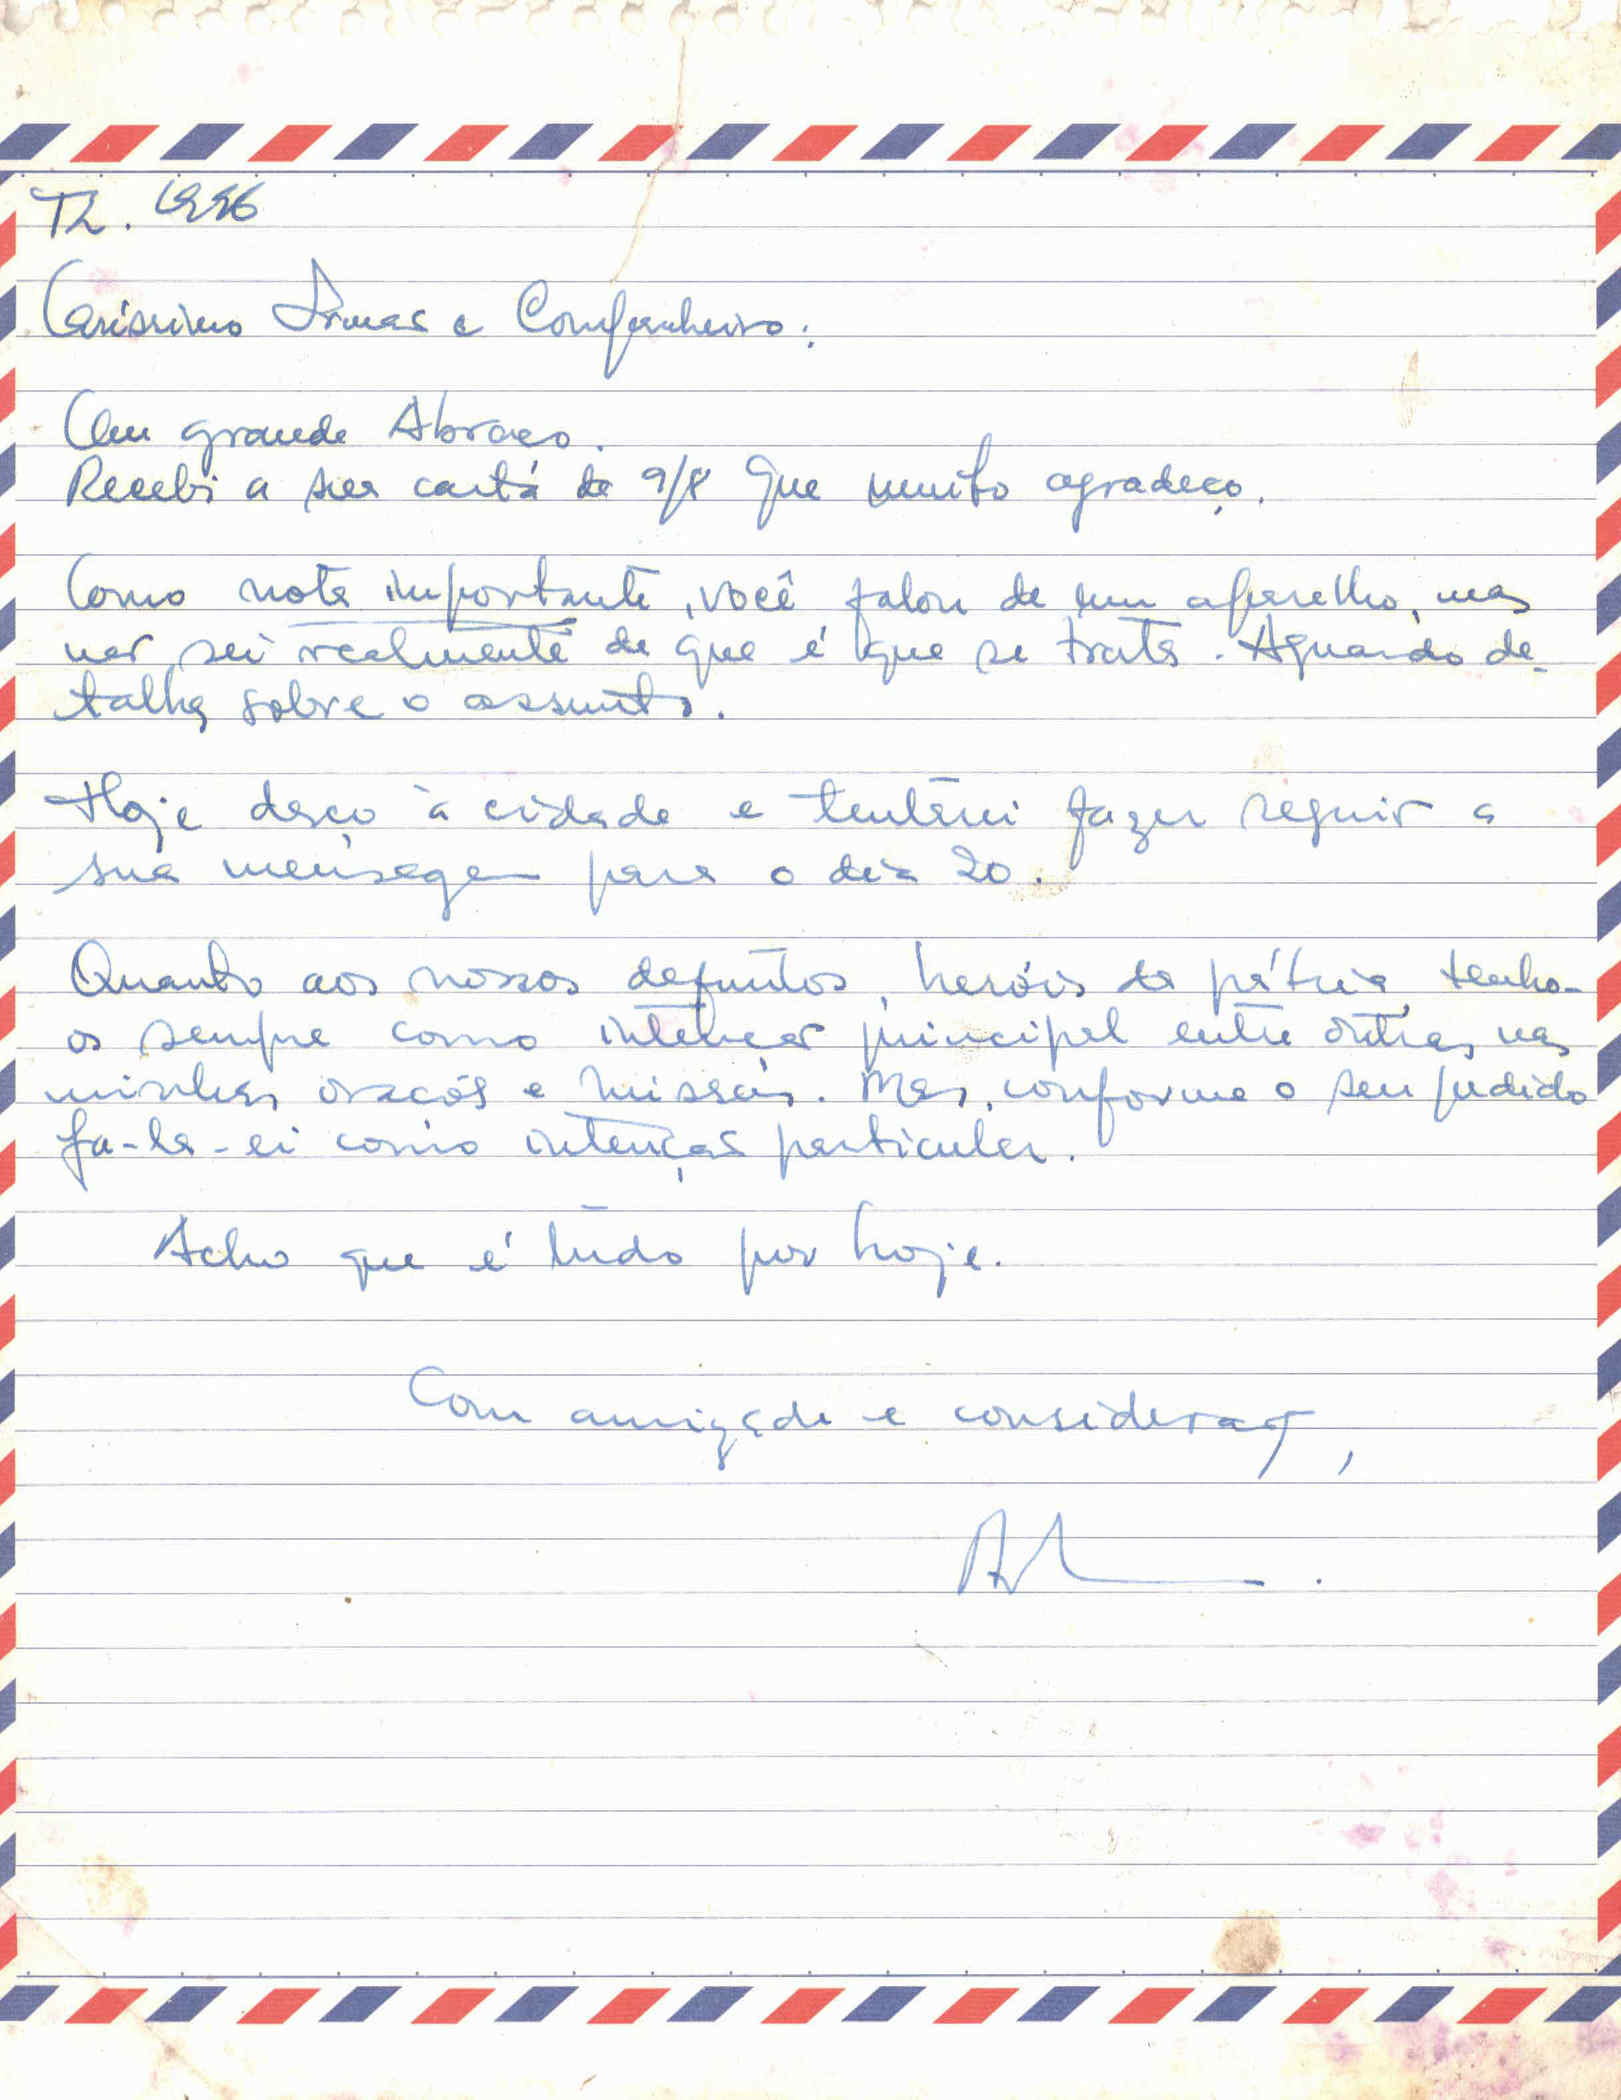 TL. 1996
Caríssimo Irmão e Companheiro:
Um grande Abraço.
Recebi a sua carta de 9/8 que muito agradeço.
Como nota importante, você falou de um aparelho, mas
não sei realmente de que é que se trata. Aguardo de-
talhes sobre o assunto.
Hoje desço à cidade e tentarei fazer seguir a
sua mensagem para o dia 20.
Quanto aos nossos defuntos, heróis da pátria, tenho-
os sempre como intenção principal entre outras nas
minhas orações e missas. Mas, conforme o seu pedido
fa-la-ei como intenção particular.
Acho que é tudo por hoje.
Com amizade e consideração,